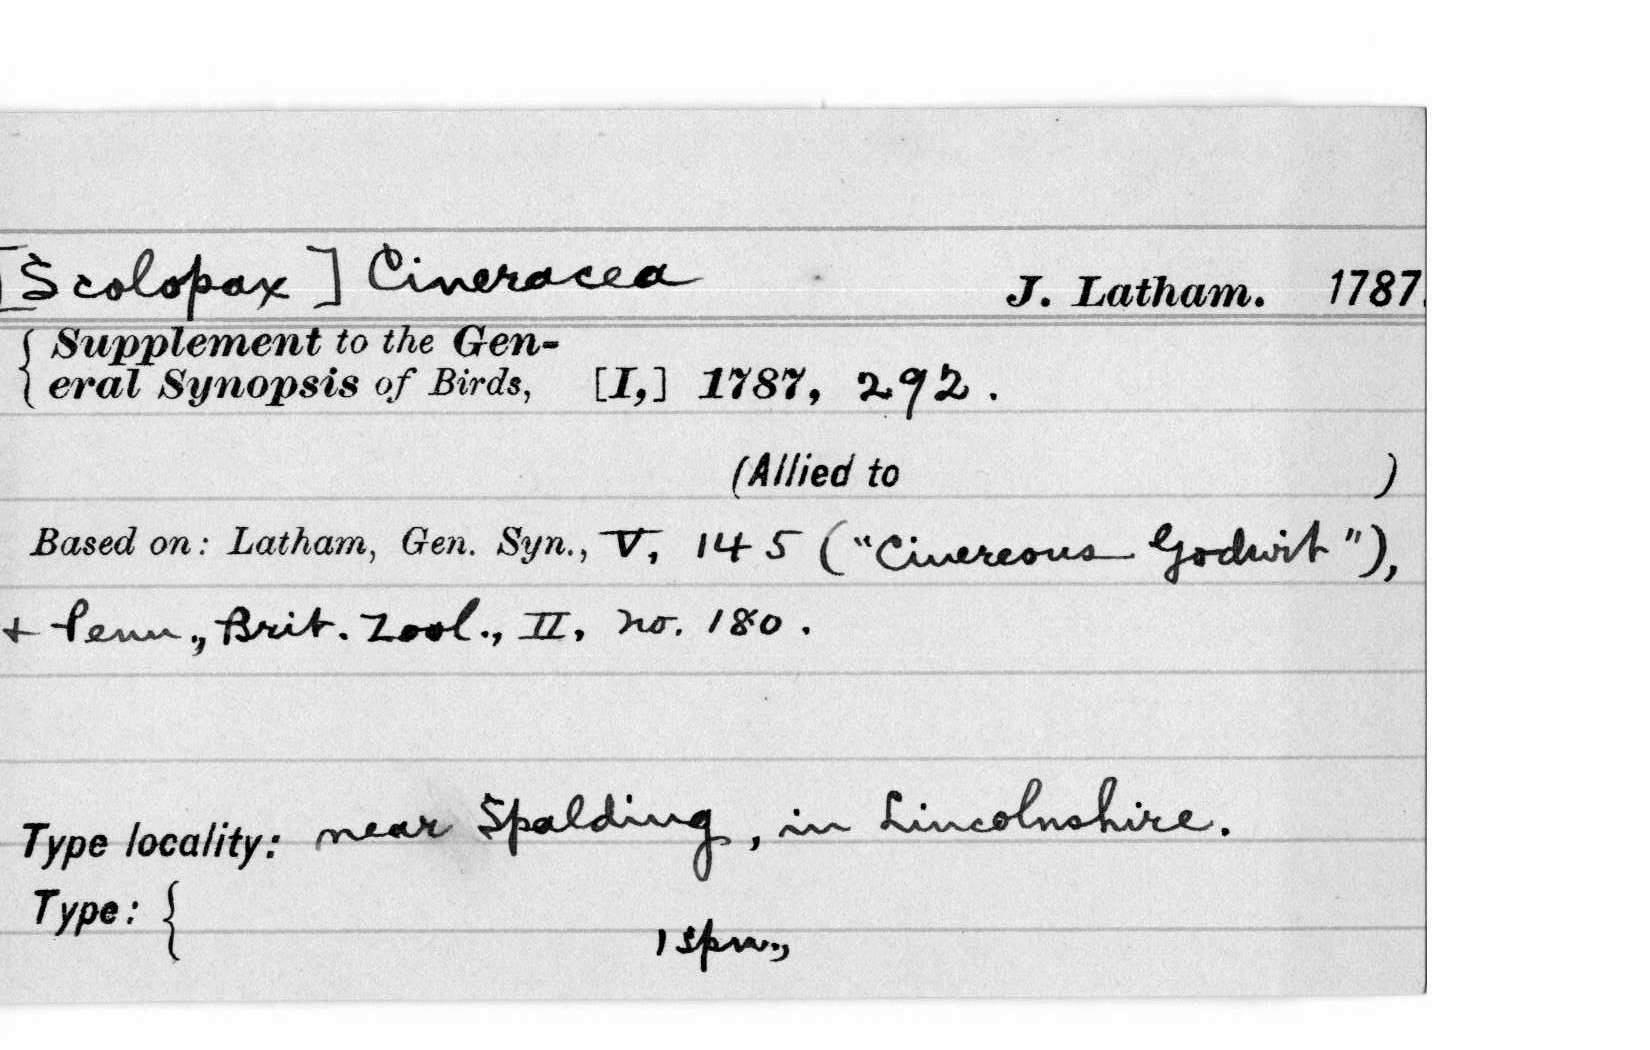 [Scolopax] Cineracea J. Latham. 1787.
{ Supplement to the Gen-
eral Synopsis of Birds, [I,] 1787, 292.
(Allied to )
Based on: Latham, Gen. Syn., V, 145 ("Cinereous Godwit"),
+ Penn., Brit. Zool., II, no. 180.
Type locality: near Spalding, in Lincolnshire.
Type: {
1 spm.,